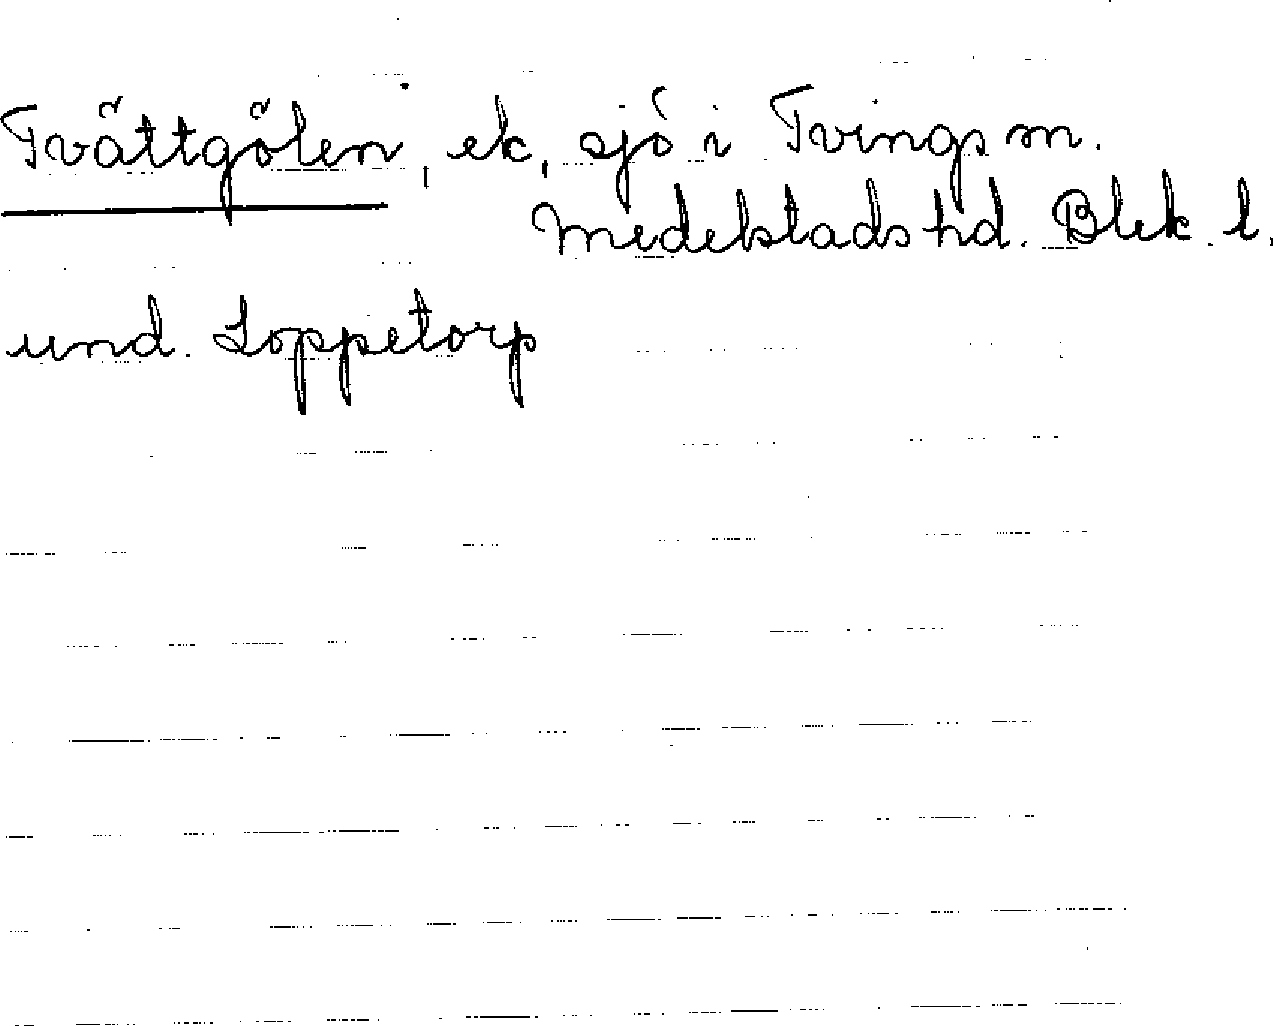 Tvättgölen, ek, sjö i Tvings sn.
Medelstads hd. Blek. l.
und. Loppetorp